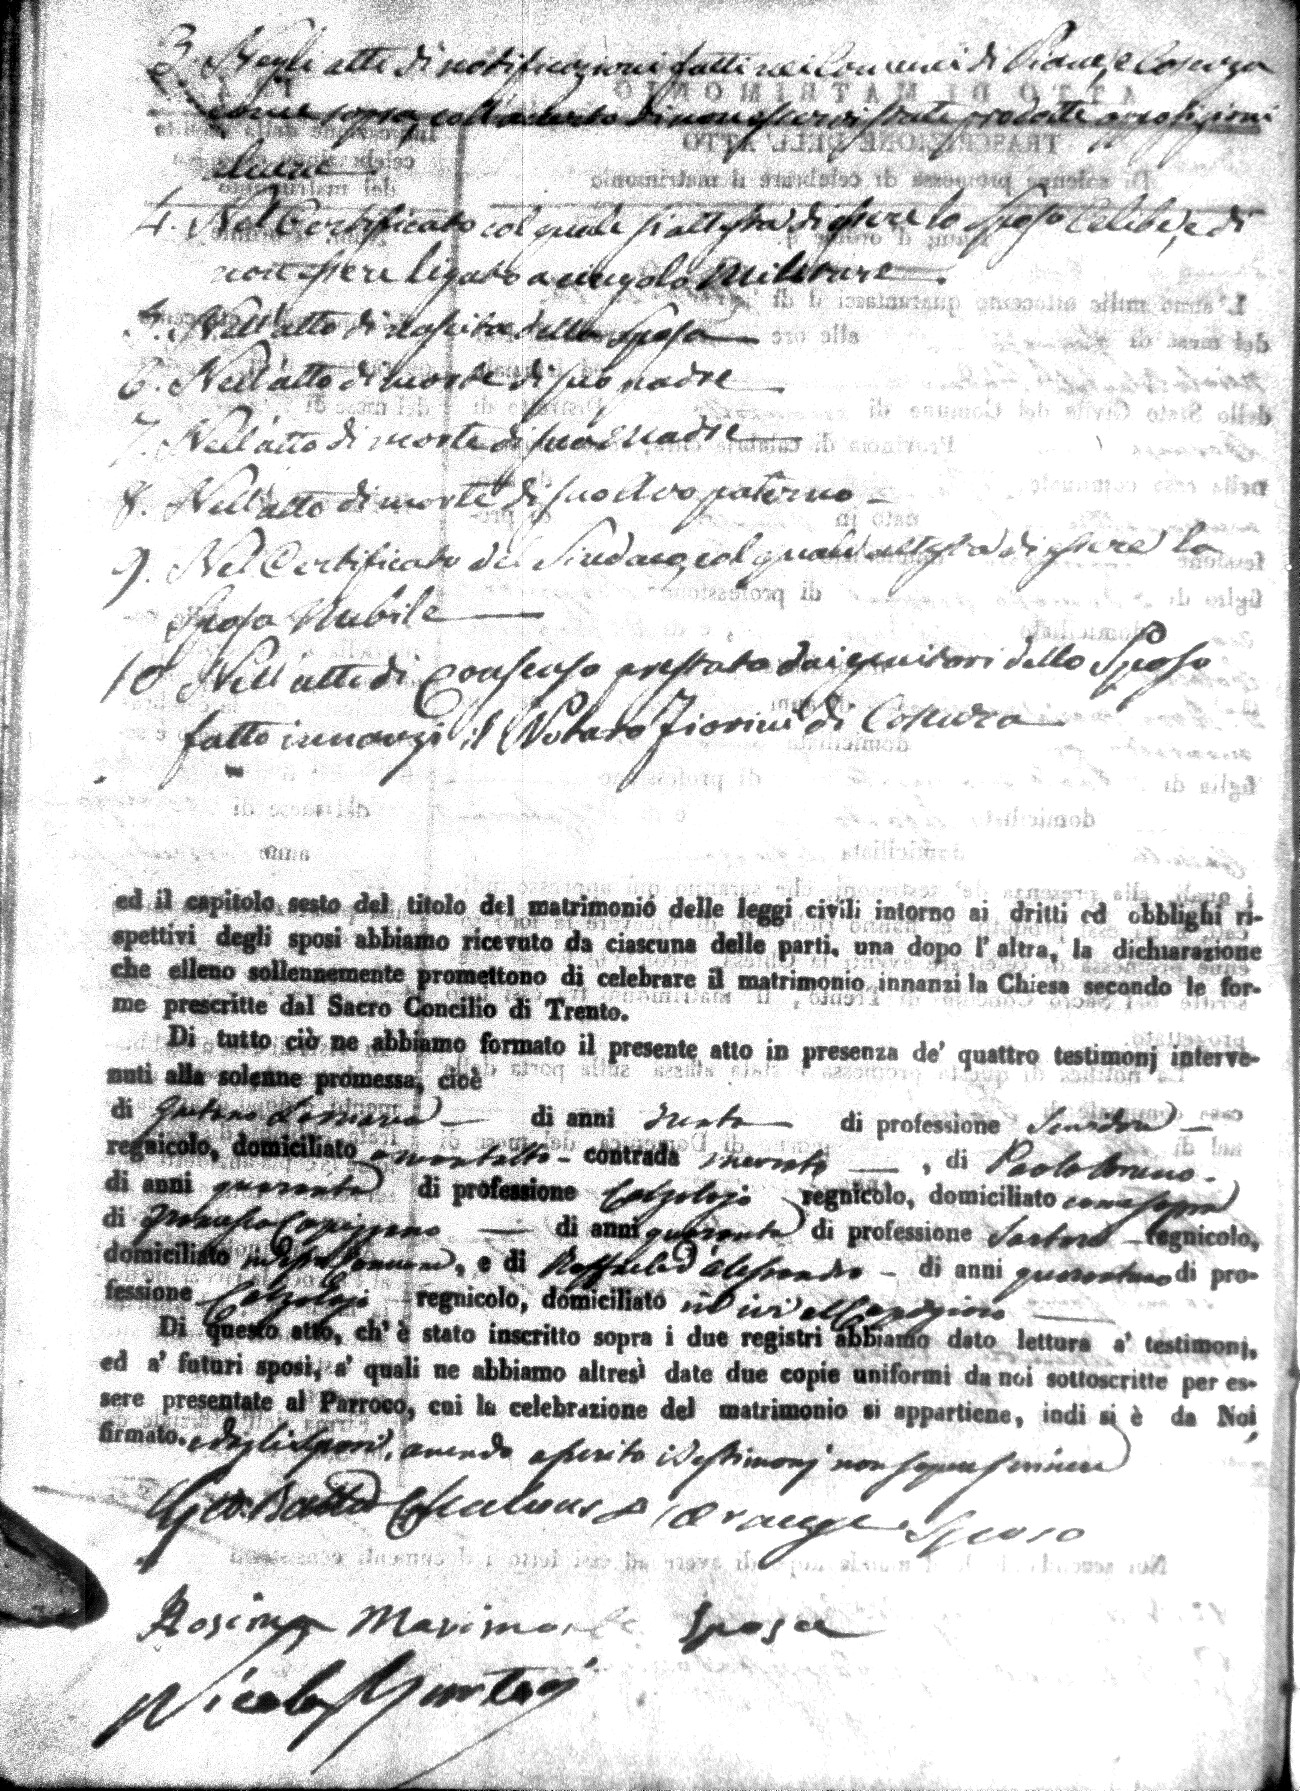 3. Negli atti di notificazioni fatti nei Comuni di Piane, e Cosenza
come sopra, coll'atto di non essервi state prodotte opposizioni
alcune
4. Nel Certificato col quale si attesta di essere lo Sposo Celibe, e di
non essere ligato a cingolo Militare.
5. Nell'atto di nascita della Sposa
6. Nell'atto di morte di suo padre
7. Nell'atto di morte di sua madre
8. Nell'atto di morte di suo Avo paterno
9. Nel Certificato del Sindaco, col quale attesta di essere la
Sposa Nubile
10. Nell'atto di Consenso prestato dai genitori dello Sposo
fatto innanzi il Notaro di Cosenza
ed il capitolo sesto del titolo del matrimonio delle leggi civili intorno ai dritti ed obblighi ri-
spettivi degli sposi abbiamo ricevuto da ciascuna delle parti, una dopo l'altra, la dichiarazione
che elleno sollennemente promettono di celebrare il matrimonio innanzi la Chiesa secondo le for-
me prescritte dal Sacro Concilio di Trento.
Di tutto ciò ne abbiamo formato il presente atto in presenza de' quattro testimonj interve-
nuti alla solenne promessa, cioè
di Gaetano di anni trenta di professione
regnicolo, domiciliato contrada , di Paolo
di anni quaranta di professione Calzolajo regnicolo, domiciliato come sopra
di Francesco di anni quaranta di professione Sartore regnicolo,
domiciliato , e di Raffaele d'Alessandro di anni di pro-
fessione Calzolajo regnicolo, domiciliato
Di questo atto, ch' è stato inscritto sopra i due registri abbiamo dato lettura a' testimonj,
ed a' futuri sposi, a' quali ne abbiamo altresì date due copie uniformi da noi sottoscritte per es-
sere presentate al Parroco, cui la celebrazione del matrimonio si appartiene, indi si è da Noi
firmato, e dagli Sposi, avendo asserito i Testimonj non sapere scrivere
Gio. Batta Sposo
Rosina Sposa
Nicola